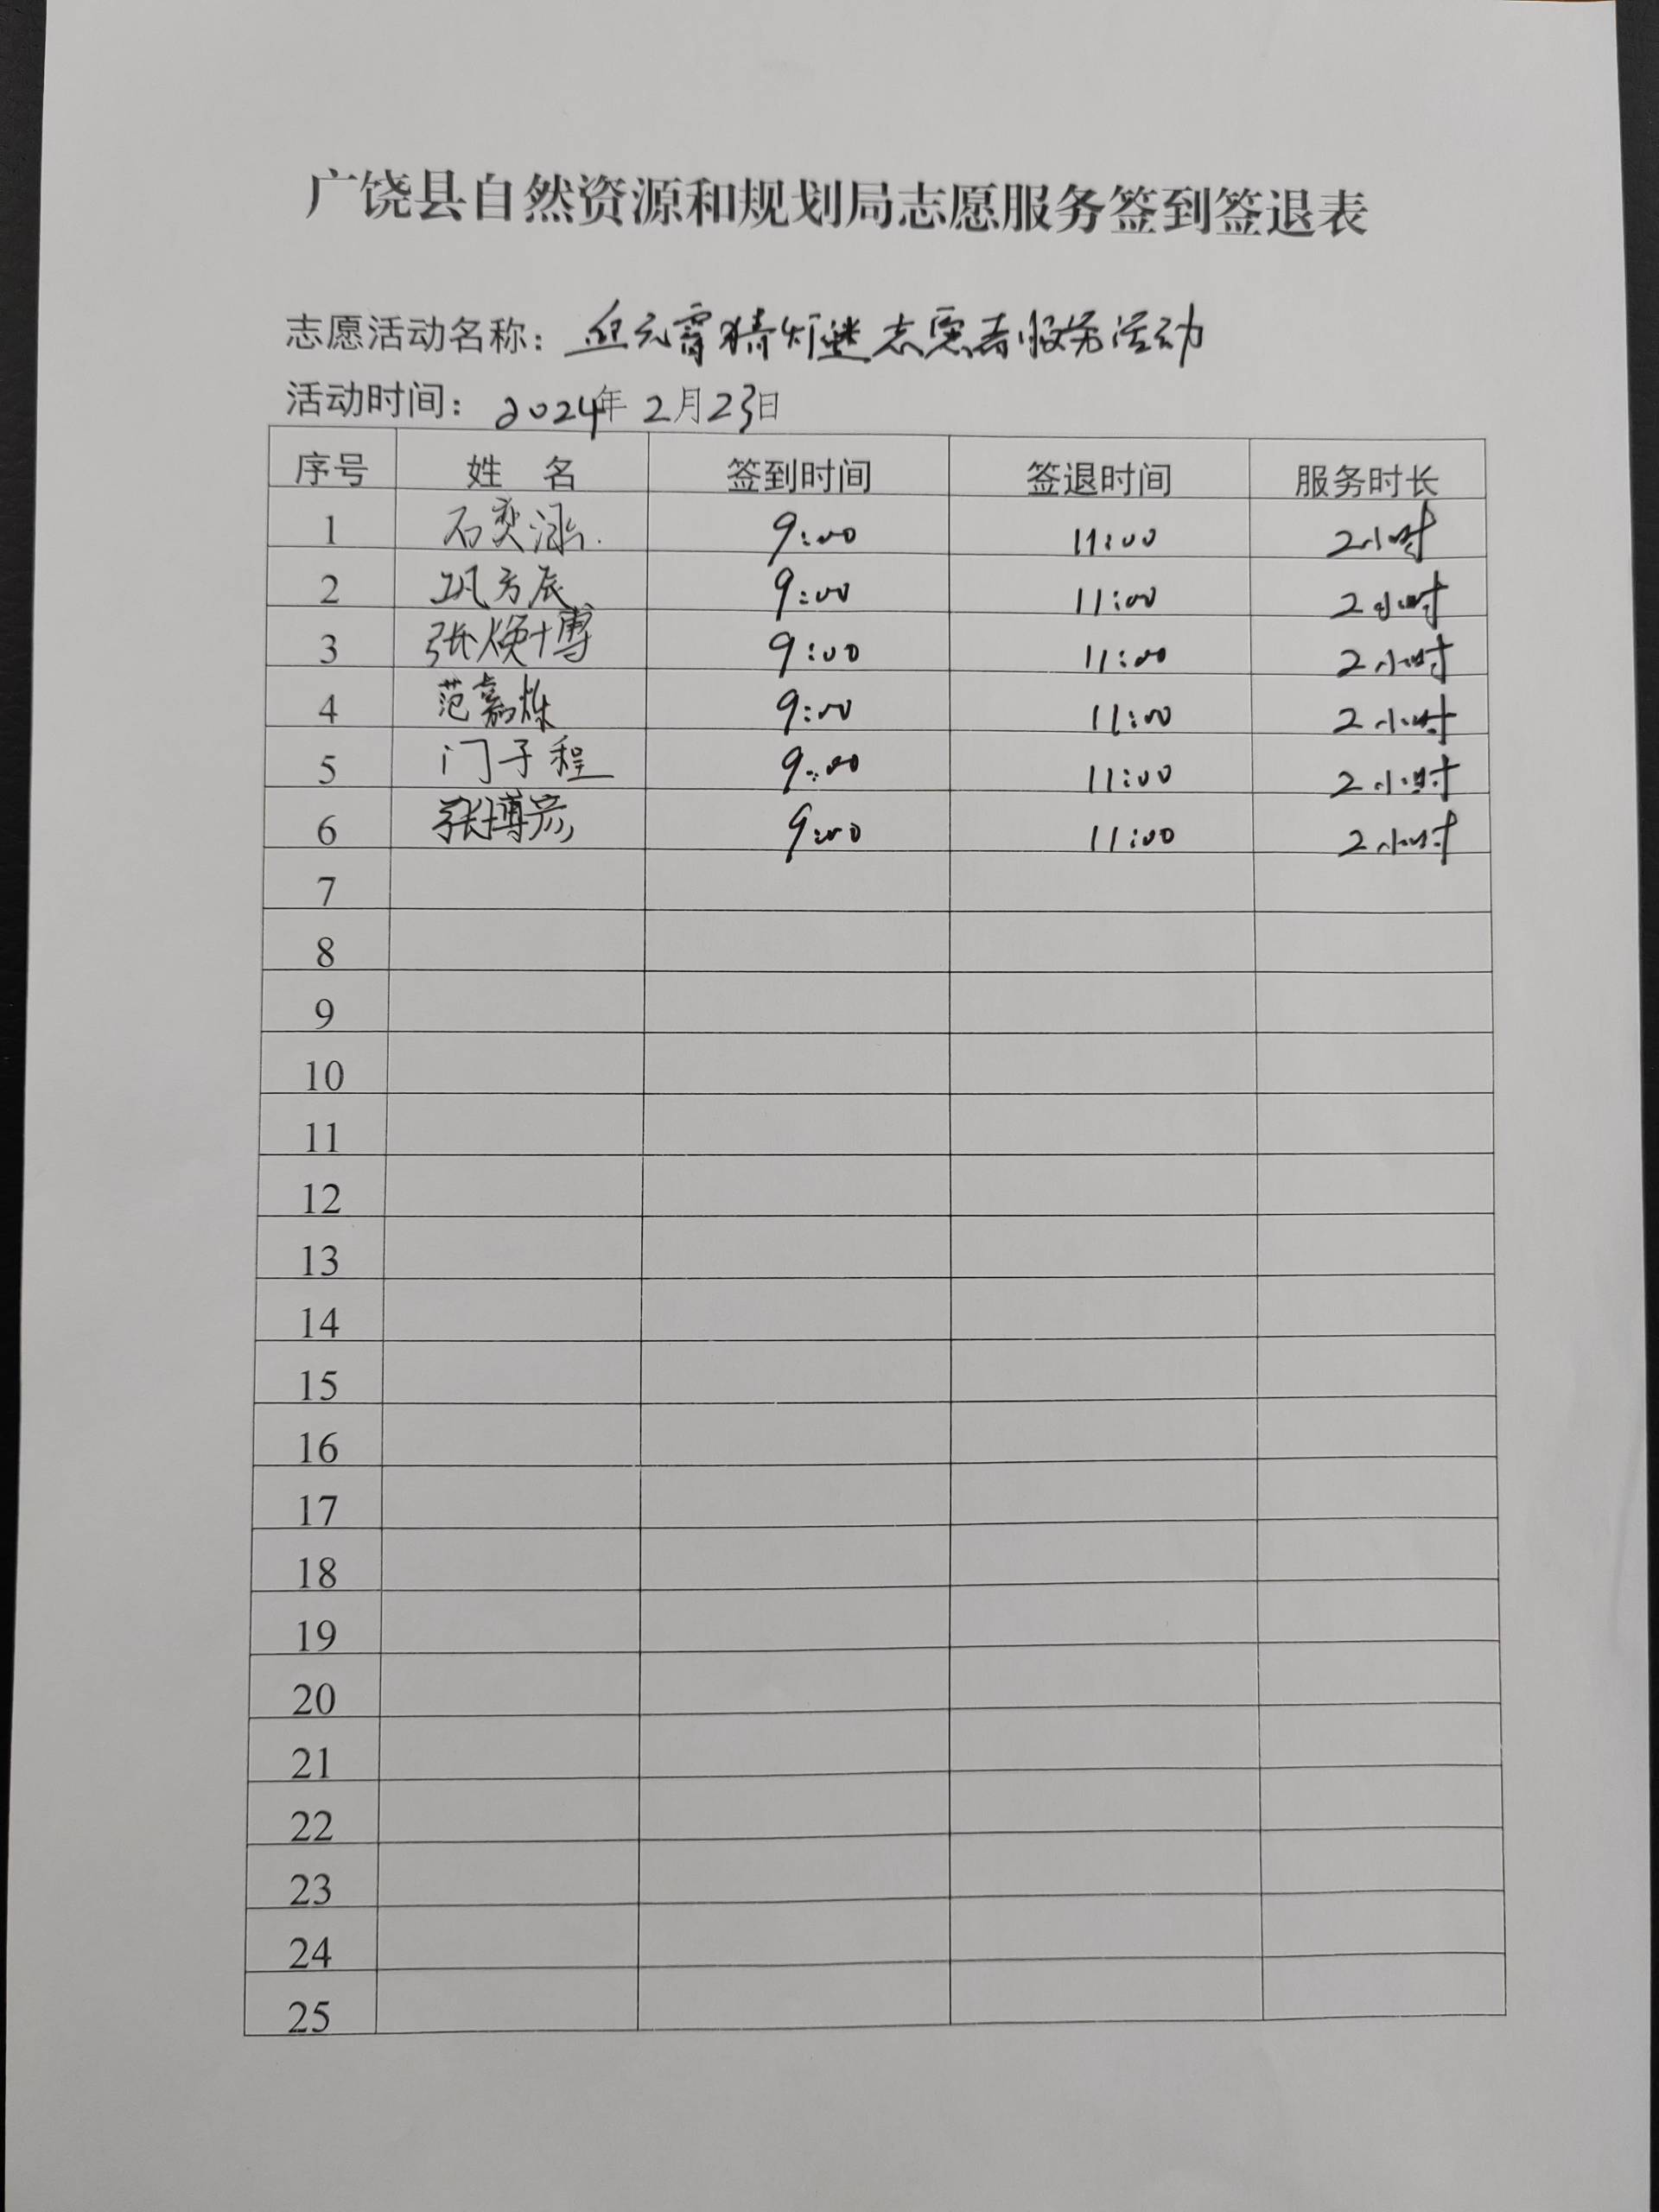 广饶县自然资源和规划局志愿服务签到签退表
志愿活动名称：迎元宵猜灯谜志愿者服务活动
活动时间：2024年2月23日
序号 姓 名 签到时间 签退时间 服务时长
1 石奕泳 9:00 11:00 2小时
2 巩方辰 9:00 11:00 2小时
3 张焕博 9:00 11:00 2小时
4 范嘉烁 9:00 11:00 2小时
5 门子程 9:00 11:00 2小时
6 张博彦 9:00 11:00 2小时
7
8
9
10
11
12
13
14
15
16
17
18
19
20
21
22
23
24
25